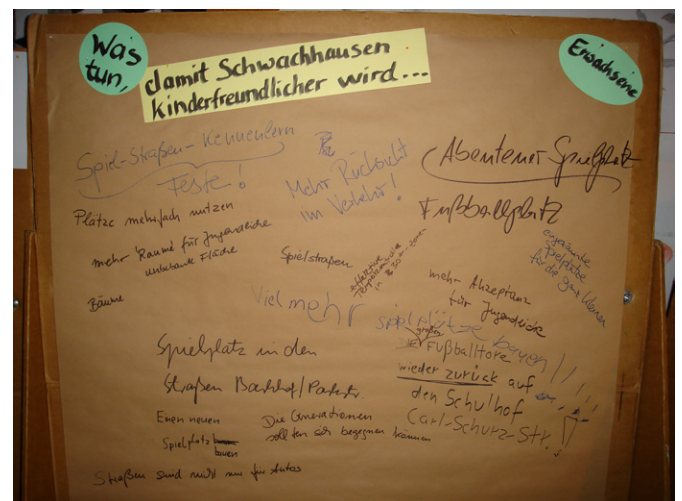 Was
tun,
damit Schwachhausen
kinderfreundlicher wird...
Erwachsene
Spiel-Straßen-Kennenlern
Feste!
Mehr Rücksicht
im Verkehr!
Abenteuer Spielplatz
Fußballplatz
Plätze mehrfach nutzen
mehr Räume für Jugendliche
unbebaute Fläche
Bäume
Spielstraßen
effektive
in 30er-Zonen
eingezäunte
Spielplätze
für die ganz kleinen
mehr Akzeptanz
für Jugendliche
Viel mehr spielplätze bauen!!!!!
Spielplatz in den
Straßen
Die großen
Fußballtore
wieder zurück auf
den Schulhof
Carl-Schurz-Str.!
Einen neuen
Spielplatz
bauen
Die Generationen
sollten sich begegnen können
Straßen sind nicht nur für Autos